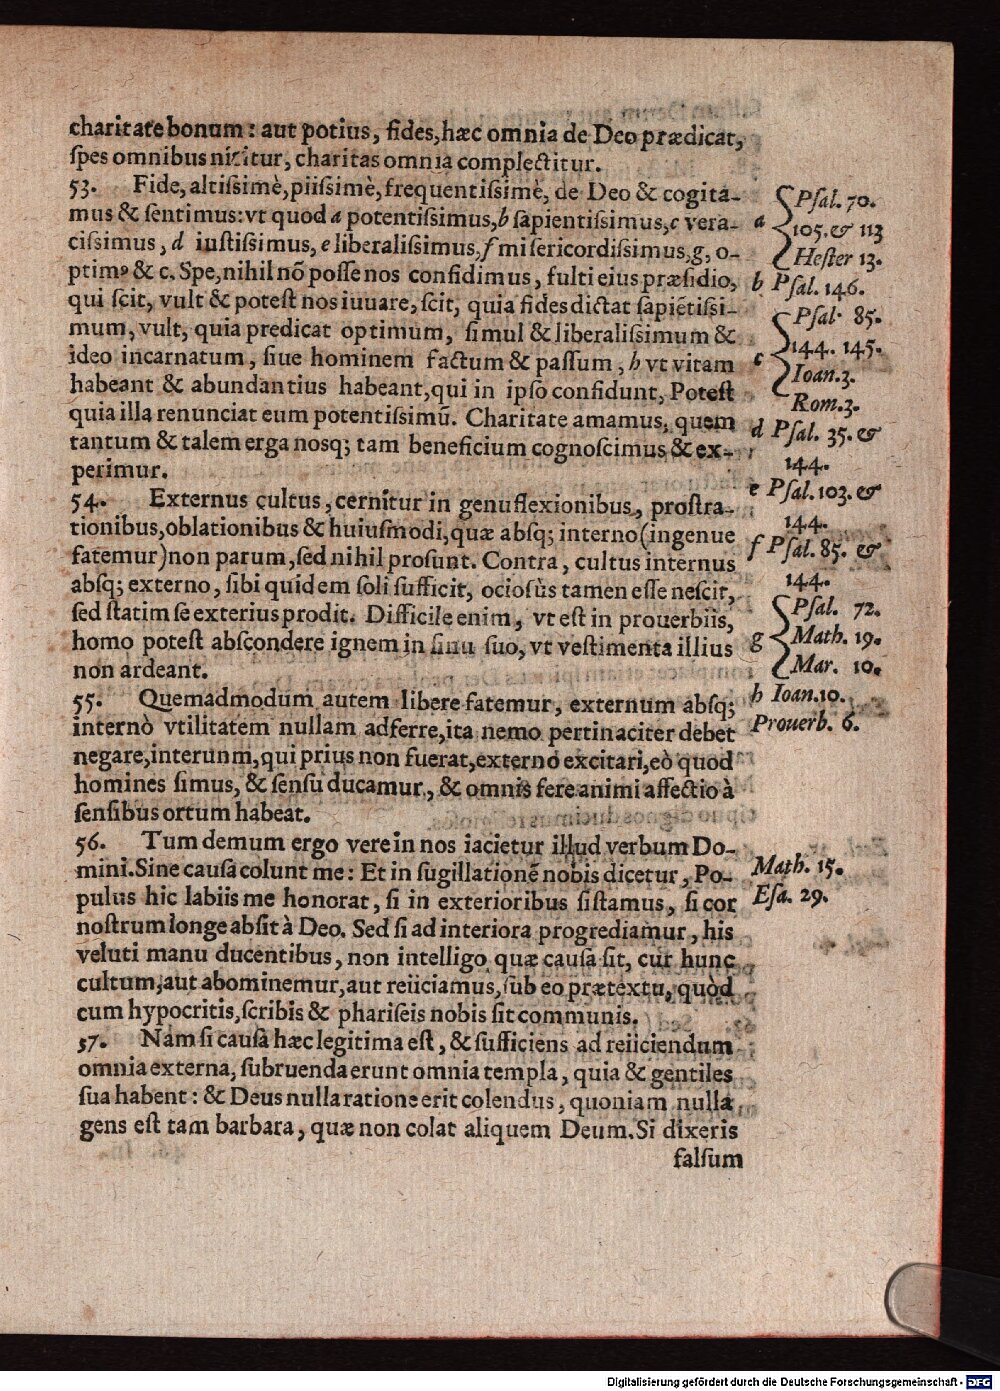 charitate bonum: aut potius, fides, hæc omnia de Deo prædicat,
ſpes omnibus nititur, charitas omnia complectitur.
53. Fide, altiſsimè, piiſsimè, frequentiſsimè, de Deo & cogita-
mus & ſentimus: vt quod a potentiſsimus, b ſapientiſsimus, c vera-
ciſsimus, d iuſtiſsimus, e liberaliſsimus, f miſericordiſsimus, g, o-
ptimꝰ & c. Spe, nihil nō poſſe nos confidimus, fulti eius præſidio,
qui ſcit, vult & poteſt nos iuuare, ſcit, quia fides dictat ſapiētiſsi-
mum, vult, quia predicat optimum, ſimul & liberaliſsimum &
ideo incarnatum, ſiue hominem factum & paſſum, h vt vitam
habeant & abundantius habeant, qui in ipſo confidunt, Poteſt
quia illa renunciat eum potentiſsimū. Charitate amamus, quem
tantum & talem erga nosq; tam beneficium cognoſcimus & ex-
perimur.
54. Externus cultus, cernitur in genuflexionibus, proſtra-
tionibus, oblationibus & huiuſmodi, quæ abſq; interno (ingenue
fatemur) non parum, ſed nihil proſunt. Contra, cultus internus
abſq; externo, ſibi quidem ſoli ſufficit, ocioſus tamen eſſe neſcit,
ſed ſtatim ſe exterius prodit. Difficile enim, vt eſt in prouerbiis,
homo poteſt abſcondere ignem in ſinu ſuo, vt veſtimenta illius
non ardeant.
55. Quemadmodum autem libere fatemur, externum abſq;
internò vtilitatem nullam adferre, ita nemo pertinaciter debet
negare, interunm, qui prius non fuerat, externo excitari, eò quod
homines ſimus, & ſenſu ducamur, & omnis fere animi affectio à
ſenſibus ortum habeat.
56. Tum demum ergo vere in nos iacietur illud verbum Do-
mini. Sine cauſa colunt me: Et in ſugillationē nobis dicetur, Po-
pulus hic labiis me honorat, ſi in exterioribus ſiſtamus, ſi cor
noſtrum longe abſit à Deo. Sed ſi ad interiora progrediamur, his
veluti manu ducentibus, non intelligo quæ cauſa ſit, cur hunc
cultum, aut abominemur, aut reiiciamus, ſub eo prætextu, quòd
cum hypocritis, ſcribis & phariſeis nobis ſit communis.
57. Nam ſi cauſa hæc legitima eſt, & ſufficiens ad reiiciendum
omnia externa, ſubruenda erunt omnia templa, quia & gentiles
ſua habent: & Deus nulla ratione erit colendus, quoniam nulla
gens eſt tam barbara, quæ non colat aliquem Deum. Si dixeris
falſum
Pſal. 70.
a 105. & 113
Heſter 13.
b Pſal. 146.
Pſal. 85.
144. 145.
c Ioan. 3.
Rom. 3.
d Pſal. 35. &
144.
e Pſal. 103. &
144.
f Pſal. 85. &
144.
Pſal. 72.
g Math. 19.
Mar. 10.
h Ioan. 10.
Prouerb. 6.
Math. 15.
Eſa. 29.
Digitalisierung gefördert durch die Deutsche Forschungsgemeinschaft - DFG